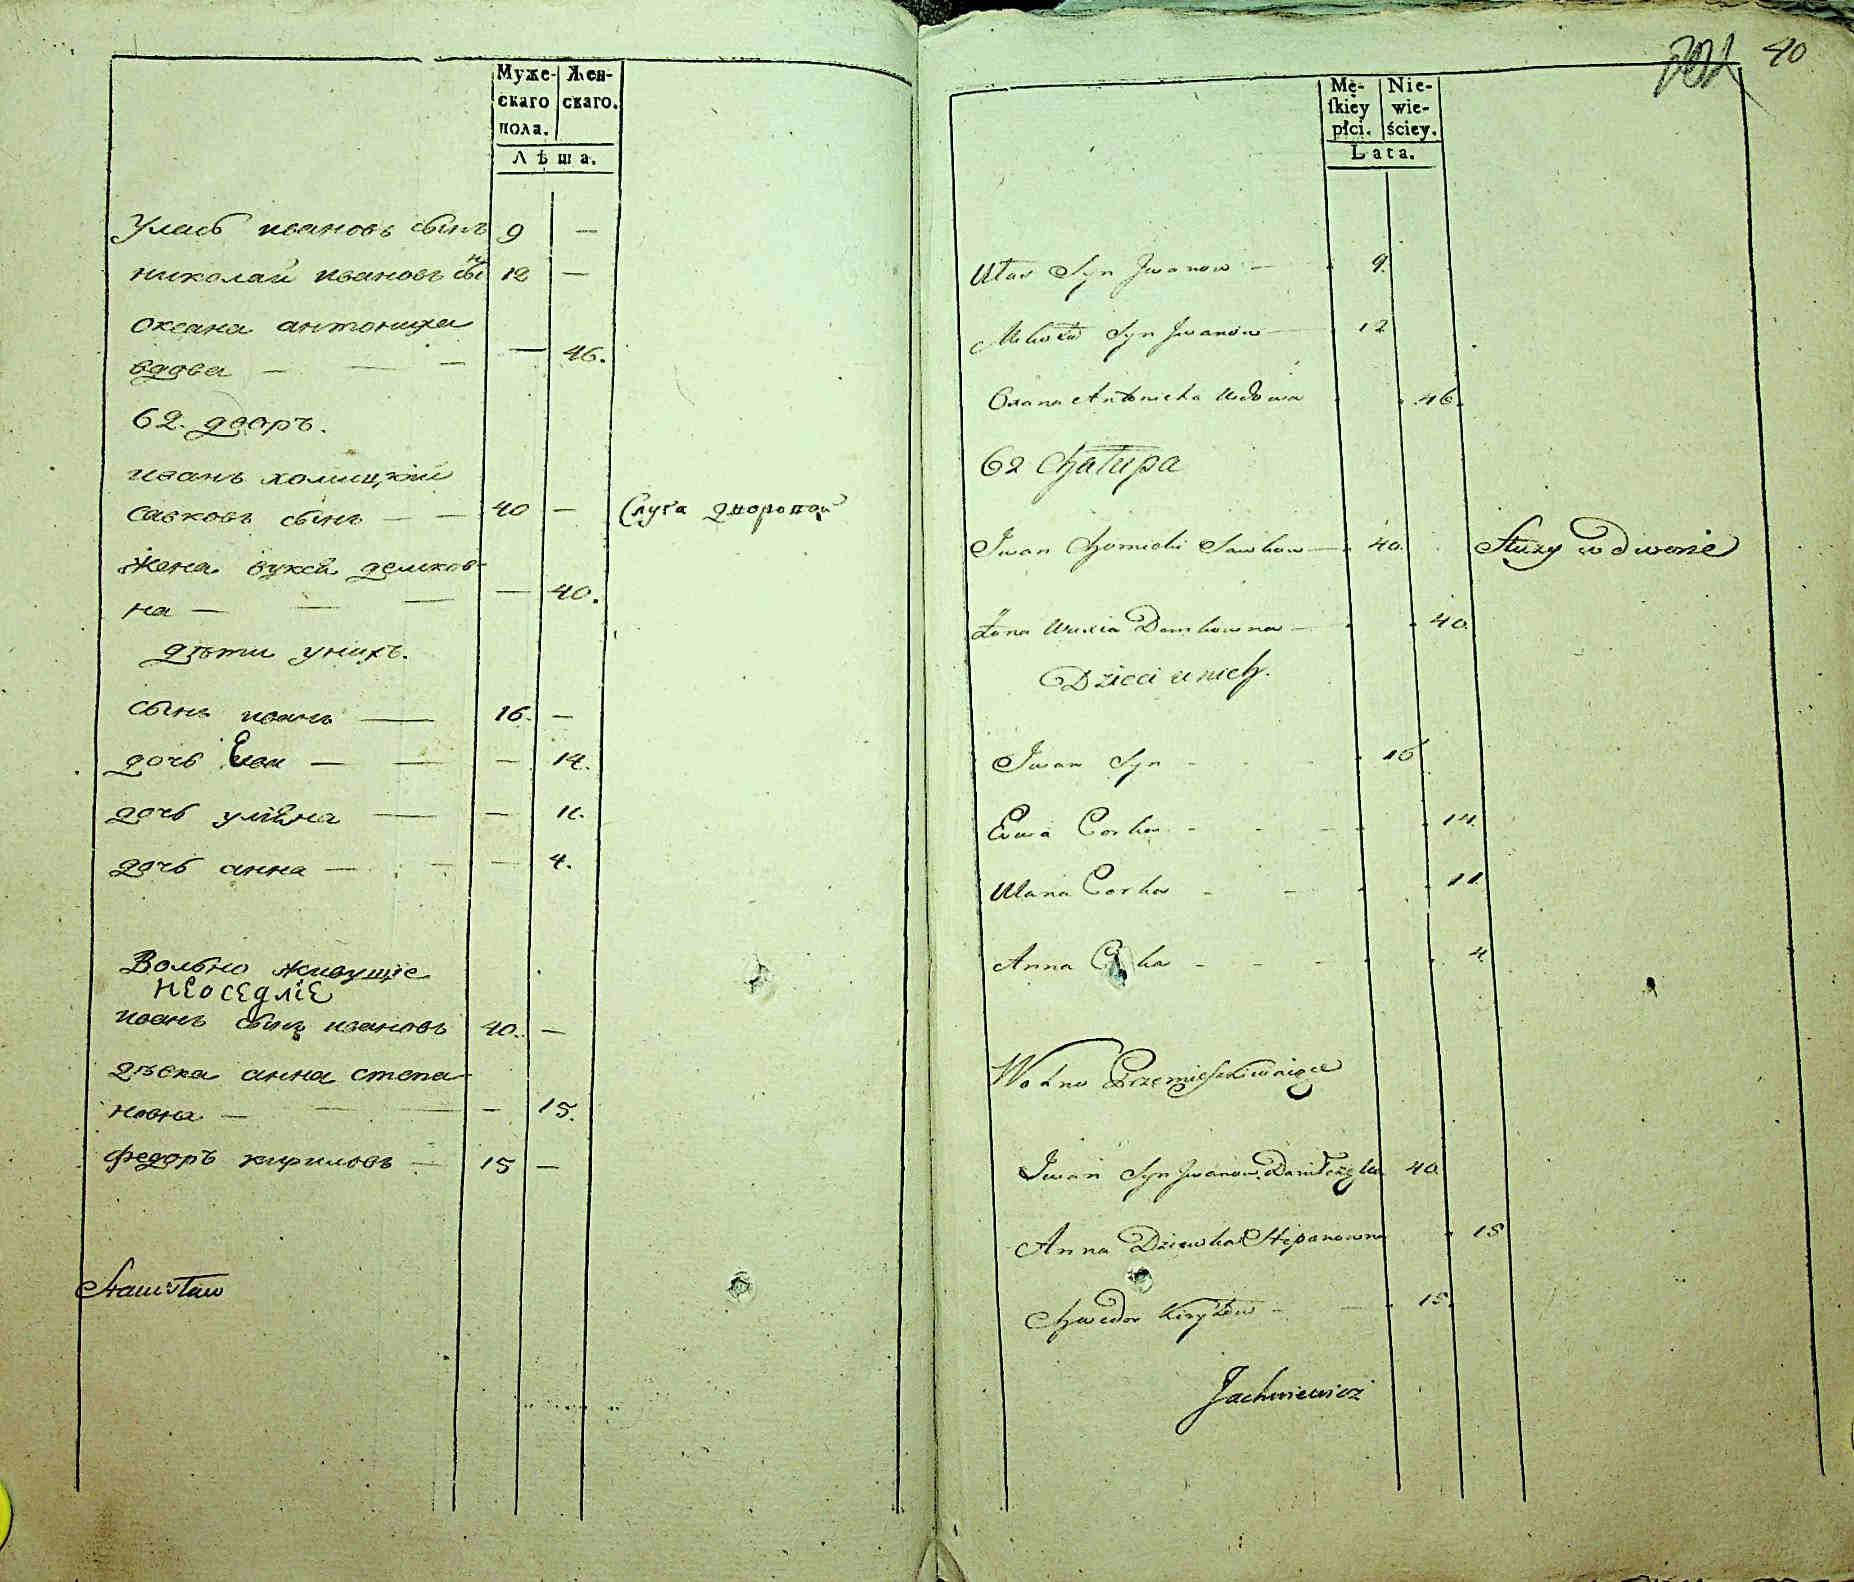 Муже- Жен-
скаго скаго.
пола.
Лѣта.
Уласъ ивановъ сынъ 9 —
николай ивановъ сынъ 12 —
Оксана антониха
вдова — — — — 46.
62. дворъ.
иванъ хомицкій
савковъ сынъ — — 40 — Слуга дворовой
жена вукса демков-
на — — — — 40.
дѣти унихъ.
сынъ иванъ — 16. —
дочь Ева — — — 14.
дочь уліяна — — 11.
дочь анна — — — 4.
Вольно живущіе
неоседліе
иванъ сынъ ивановъ 40. —
дѣвка анна степа-
новна — — — — 15.
федоръ кириловъ — 15 —
Stanisław
40
Mę- Nie-
skiey wie-
płci. ściey.
Lata.
Ułas Syn Jwanow — 9.
Mikołay Syn Jwanow — 12
Oxana Antonicha Wdowa 46.
62 Chałupa
Jwan Chomicki Sawkow — 40. Służy w dworze
Żona Wuxia Demkowna — 40.
Dzieci u nich.
Jwan Syn - - - 16
Ewa Corka - - - 14.
Ulana Corka - - 11
Anna Corka - - - 4.
Wolno Przemieszkiwaiące
Jwan Syn Jwanow Daniłczyk 40.
Anna Dziewka Stepanowna 15
Chwedor Kiryłow - — 15.
Jachniewicz